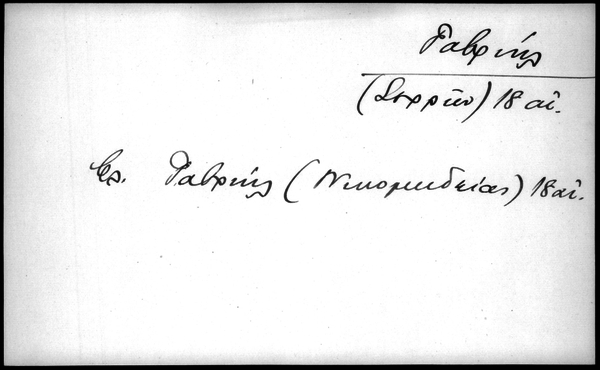 Γαβριήλ
(Σερρῶν) 18 αἰ.
Βλ. Γαβριήλ (Νικομηδείας) 18 αἰ.